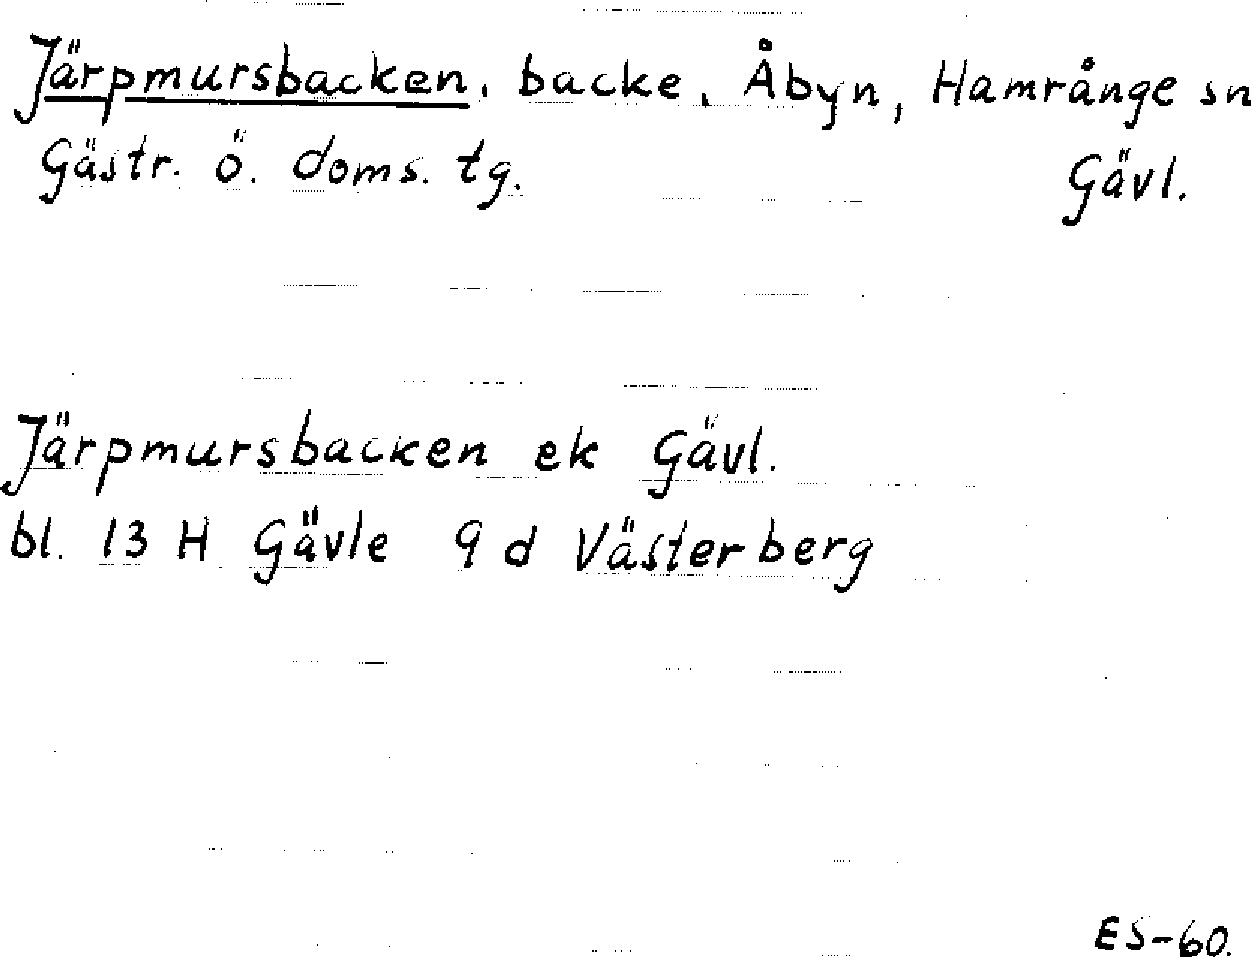 Järpmursbacken, backe, Åbyn, Hamrånge sn
Gästr. ö. doms. tg. Gävl.
Järpmursbacken ek Gävl.
bl. 13 H Gävle 9 d Västerberg
ES-60.